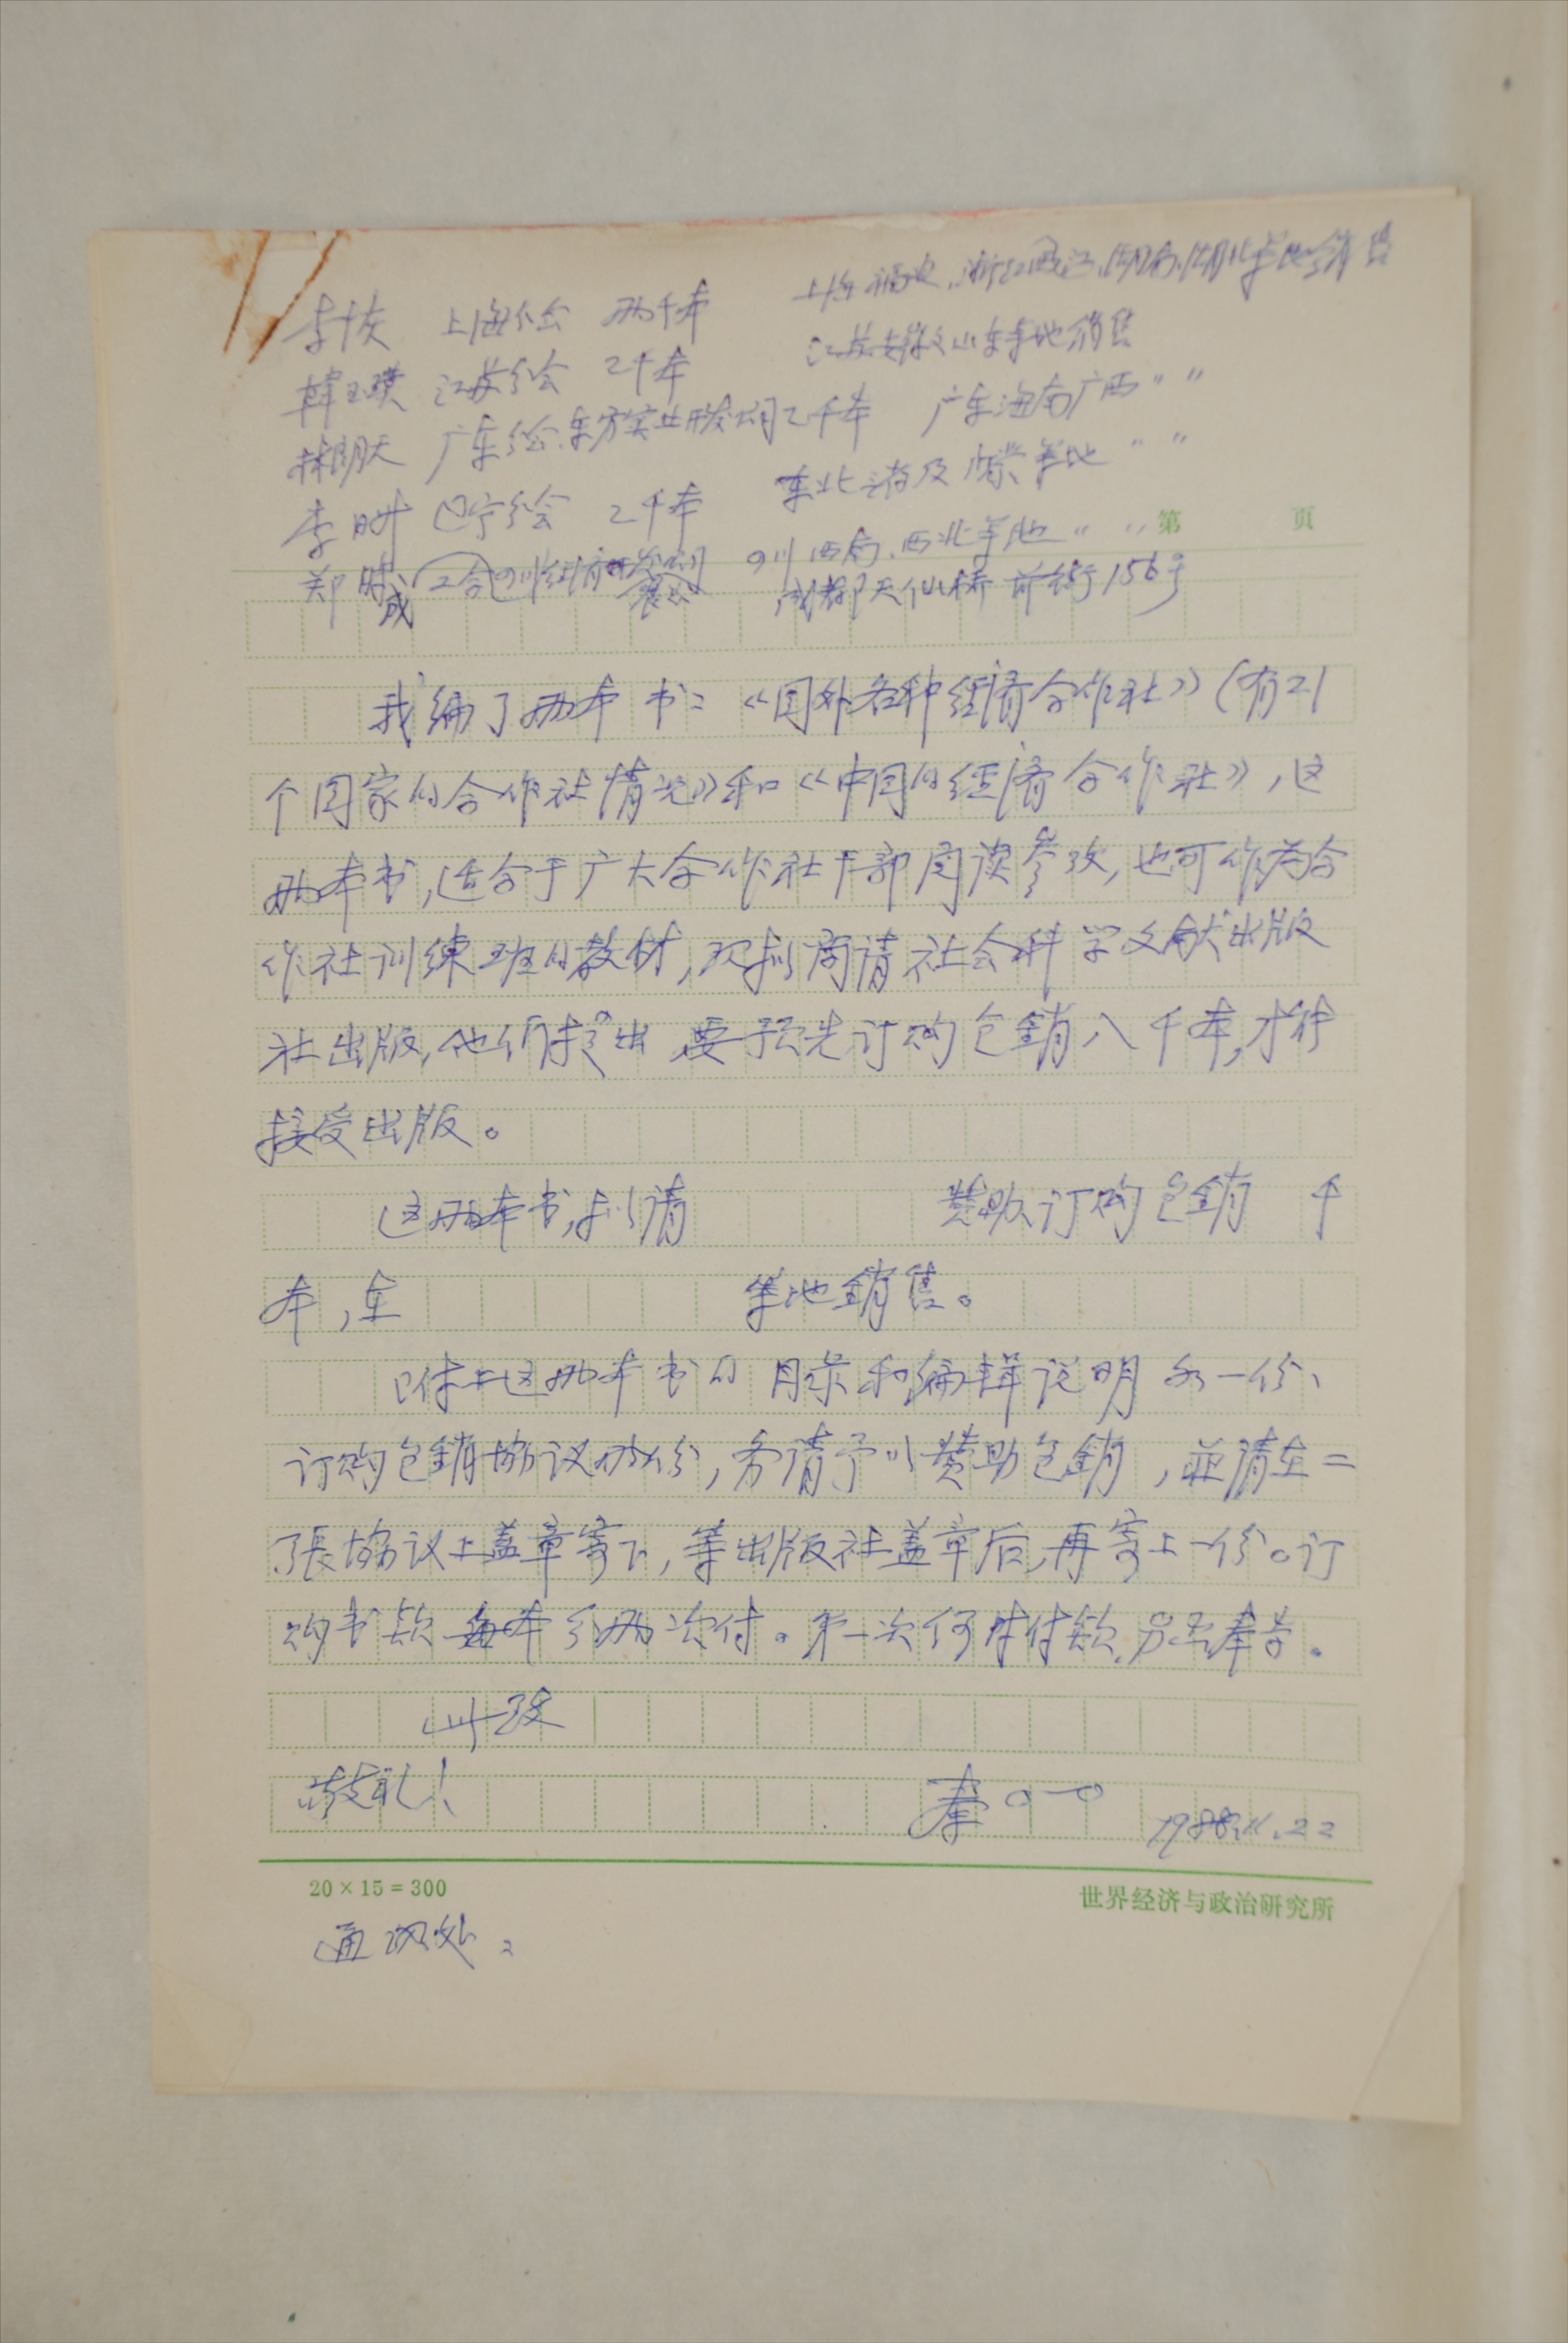 上海 福建、浙江、江西、湖南、湖北等地销售
上海分会 两千本
江苏安徽山东等地销售
韩玉璞 江苏分会 2千本
林朗天 广东分会 东方实业开发公司 2千本 广东海南广西 〃 〃
东北 及 等地 〃 〃
李 辽宁分会 2千本
第 页
郑 成 工合四川经济开发公司 四川西南、西北等地 〃 〃
成都天仙桥前街156号
我编了两本书:《国外各种经济合作社》(有21
个国家的合作社情况》和《中国的经济合作社》,这
两本书,适合于广大合作社干部阅读参攷,也可作为合
作社训练班的教材,现拟商请社会科学文献出版
社出版,他们提出,要预先订购包銷八千本,才能
接受出版。
这两本书,拟请 赞助订购包銷 千
本,在 等地銷售。
附上这两本书的目录和编辑说明各一份、
订购包銷协议两份,务请予以赞助包銷,並請在二
張协议上盖章寄下,等出版社盖章后,再寄上一份。订
购书款每本分两次付。第一次何时付款,另函奉告。
此致
敬礼!
秦
1988.11.22
20×15=300
世界经济与政治研究所
通讯处: